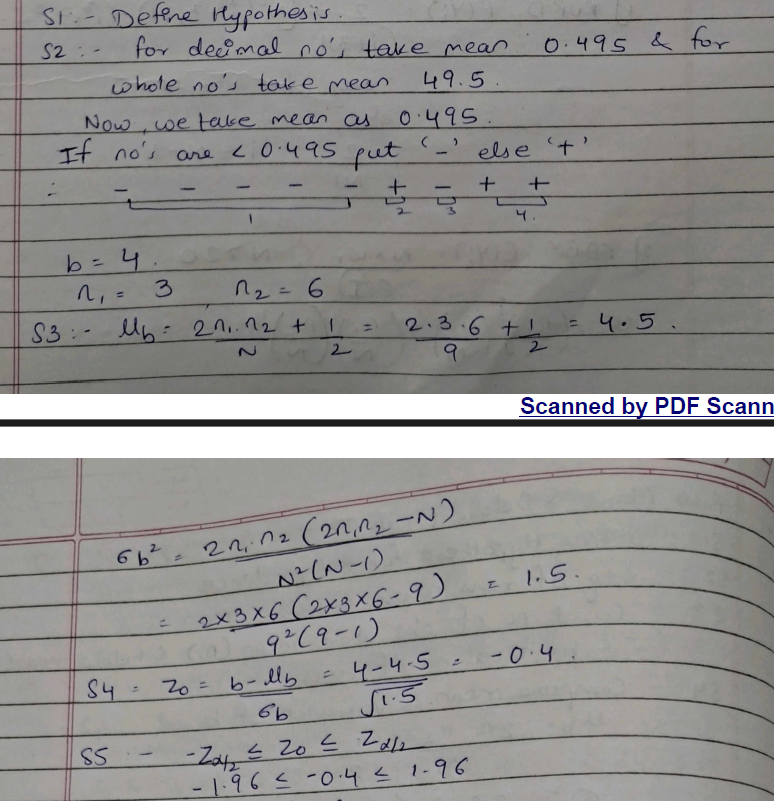 S1:- Define Hypothesis.
S2:- for decimal no's take mean 0.495 & for
whole no's take mean 49.5.
Now, we take mean as 0.495.
If no's are < 0.495 put '-' else '+'
∴ - - - - - + - + +
1 2 3 4.
b = 4.
n₁ = 3 n₂ = 6
S3:- μb = 2n₁.n₂/N + 1/2 = 2.3.6/9 + 1/2 = 4.5.
Scanned by PDF Scann
σb² = 2n₁.n₂(2n₁n₂-N)/N²(N-1)
= 2×3×6(2×3×6-9)/9²(9-1) = 1.5.
S4 = Z₀ = b-μb/σb = 4-4.5/√1.5 = -0.4.
S5 - -Zα/₂ ≤ Z₀ ≤ Zα/₂
-1.96 ≤ -0.4 ≤ 1.96